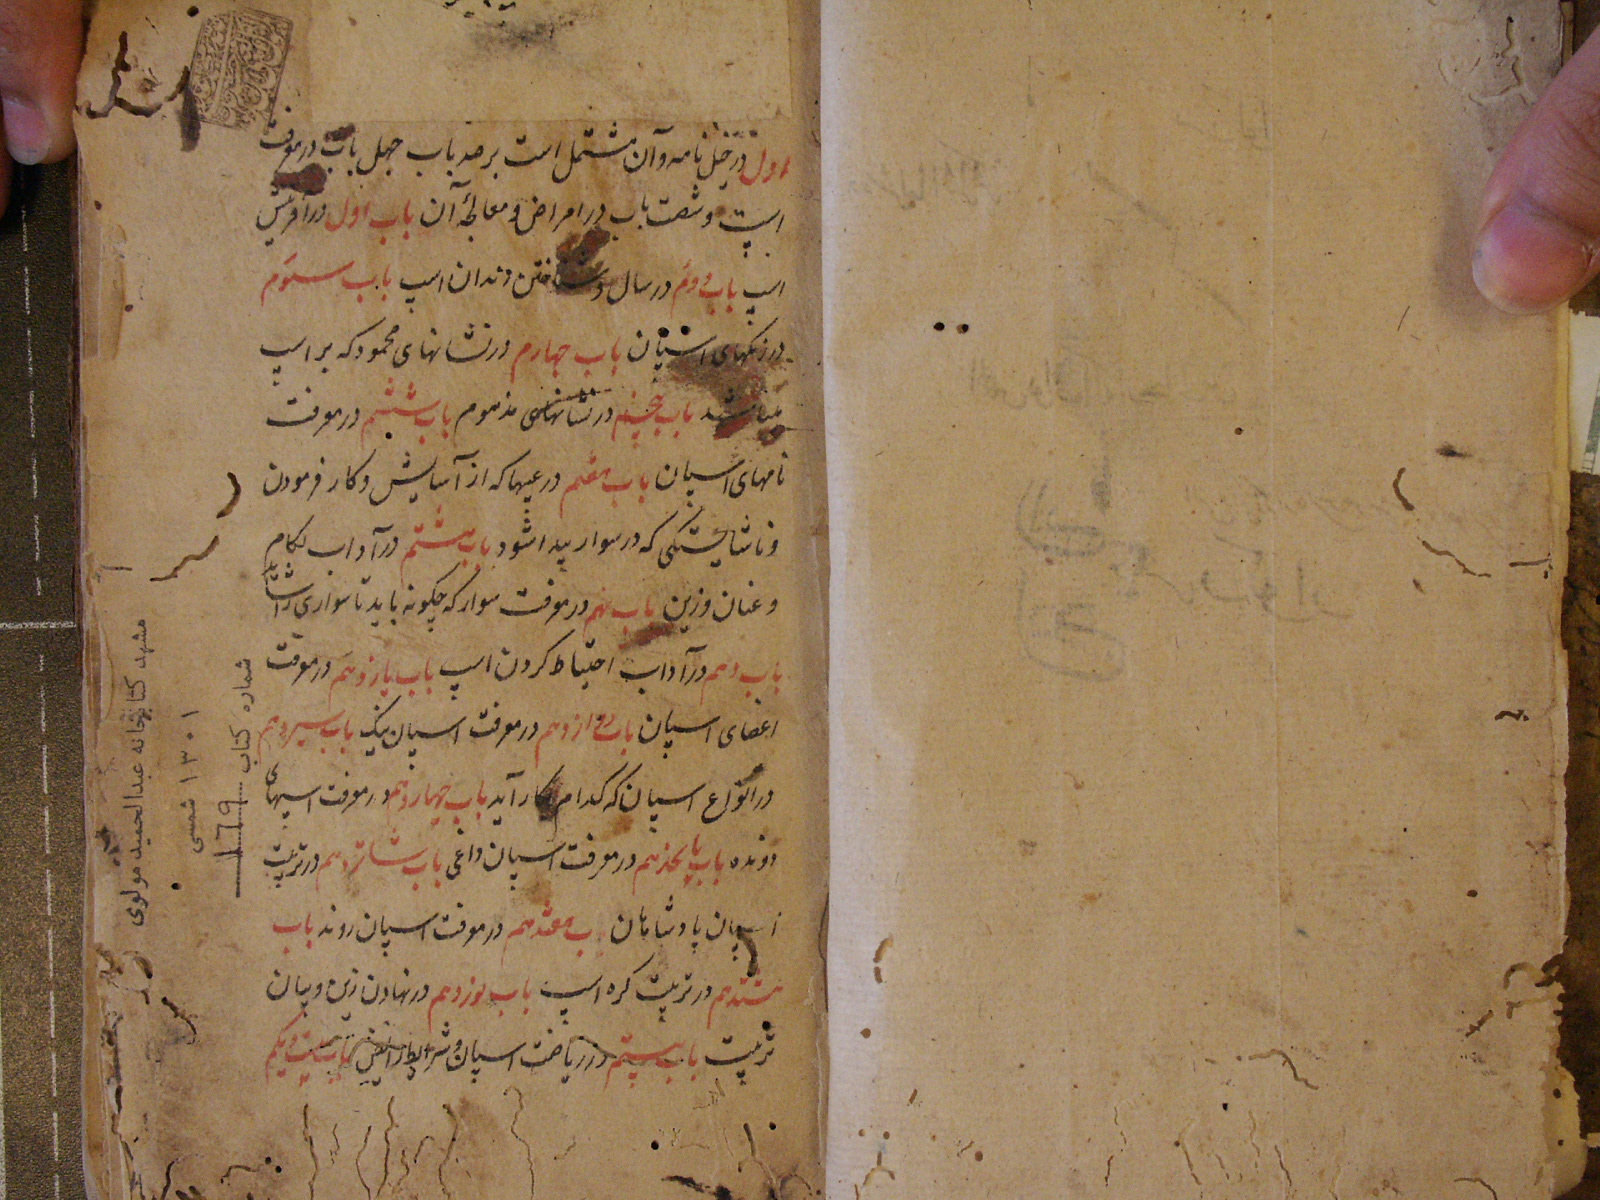 اول در خیل نامه و آن مشتمل است بر صد باب چهل باب در معرفت
اسپ و شصت باب در امراض و معالجهٔ آن باب اول در آفرینش
اسپ باب دوم در سال و شناختن دندان اسپ باب سوم
در رنگهای اسپان باب چهارم در نشانهای محمود که بر اسپ
باب پنجم در نشانهای مذموم باب ششم در معرفت
نامهای اسپان باب هفتم در عیبها که از آسایش و کار فرمودن
و ناشایستگی که در سوار پیدا شود باب هشتم در آداب لکام
و عنان و زین باب نهم در معرفت سوار که چگونه باید تا سواری را شاید
باب دهم در آداب احتیاط کردن اسپ باب یازدهم در معرفت
اعضای اسپان باب دوازدهم در معرفت اسپان نیک باب سیزدهم
در انواع اسپان که کدام کار آید باب چهاردهم در معرفت اسپهای
دونده باب پانجدهم در معرفت اسپان داغی باب شانزدهم در تربیت
اسپان پادشاهان باب هفدهم در معرفت اسپان رونده باب
هشتدهم در تربیت کره اسپ باب نوزدهم در نهادن زین و بیان
تربیت باب بیستم در ریاضت اسپان و شرایط باب بیست و یکم
مشهد کتابخانه عبدالحمید مولوی
۱۳۰۱ شمسی
شماره کتاب ۱۶۹